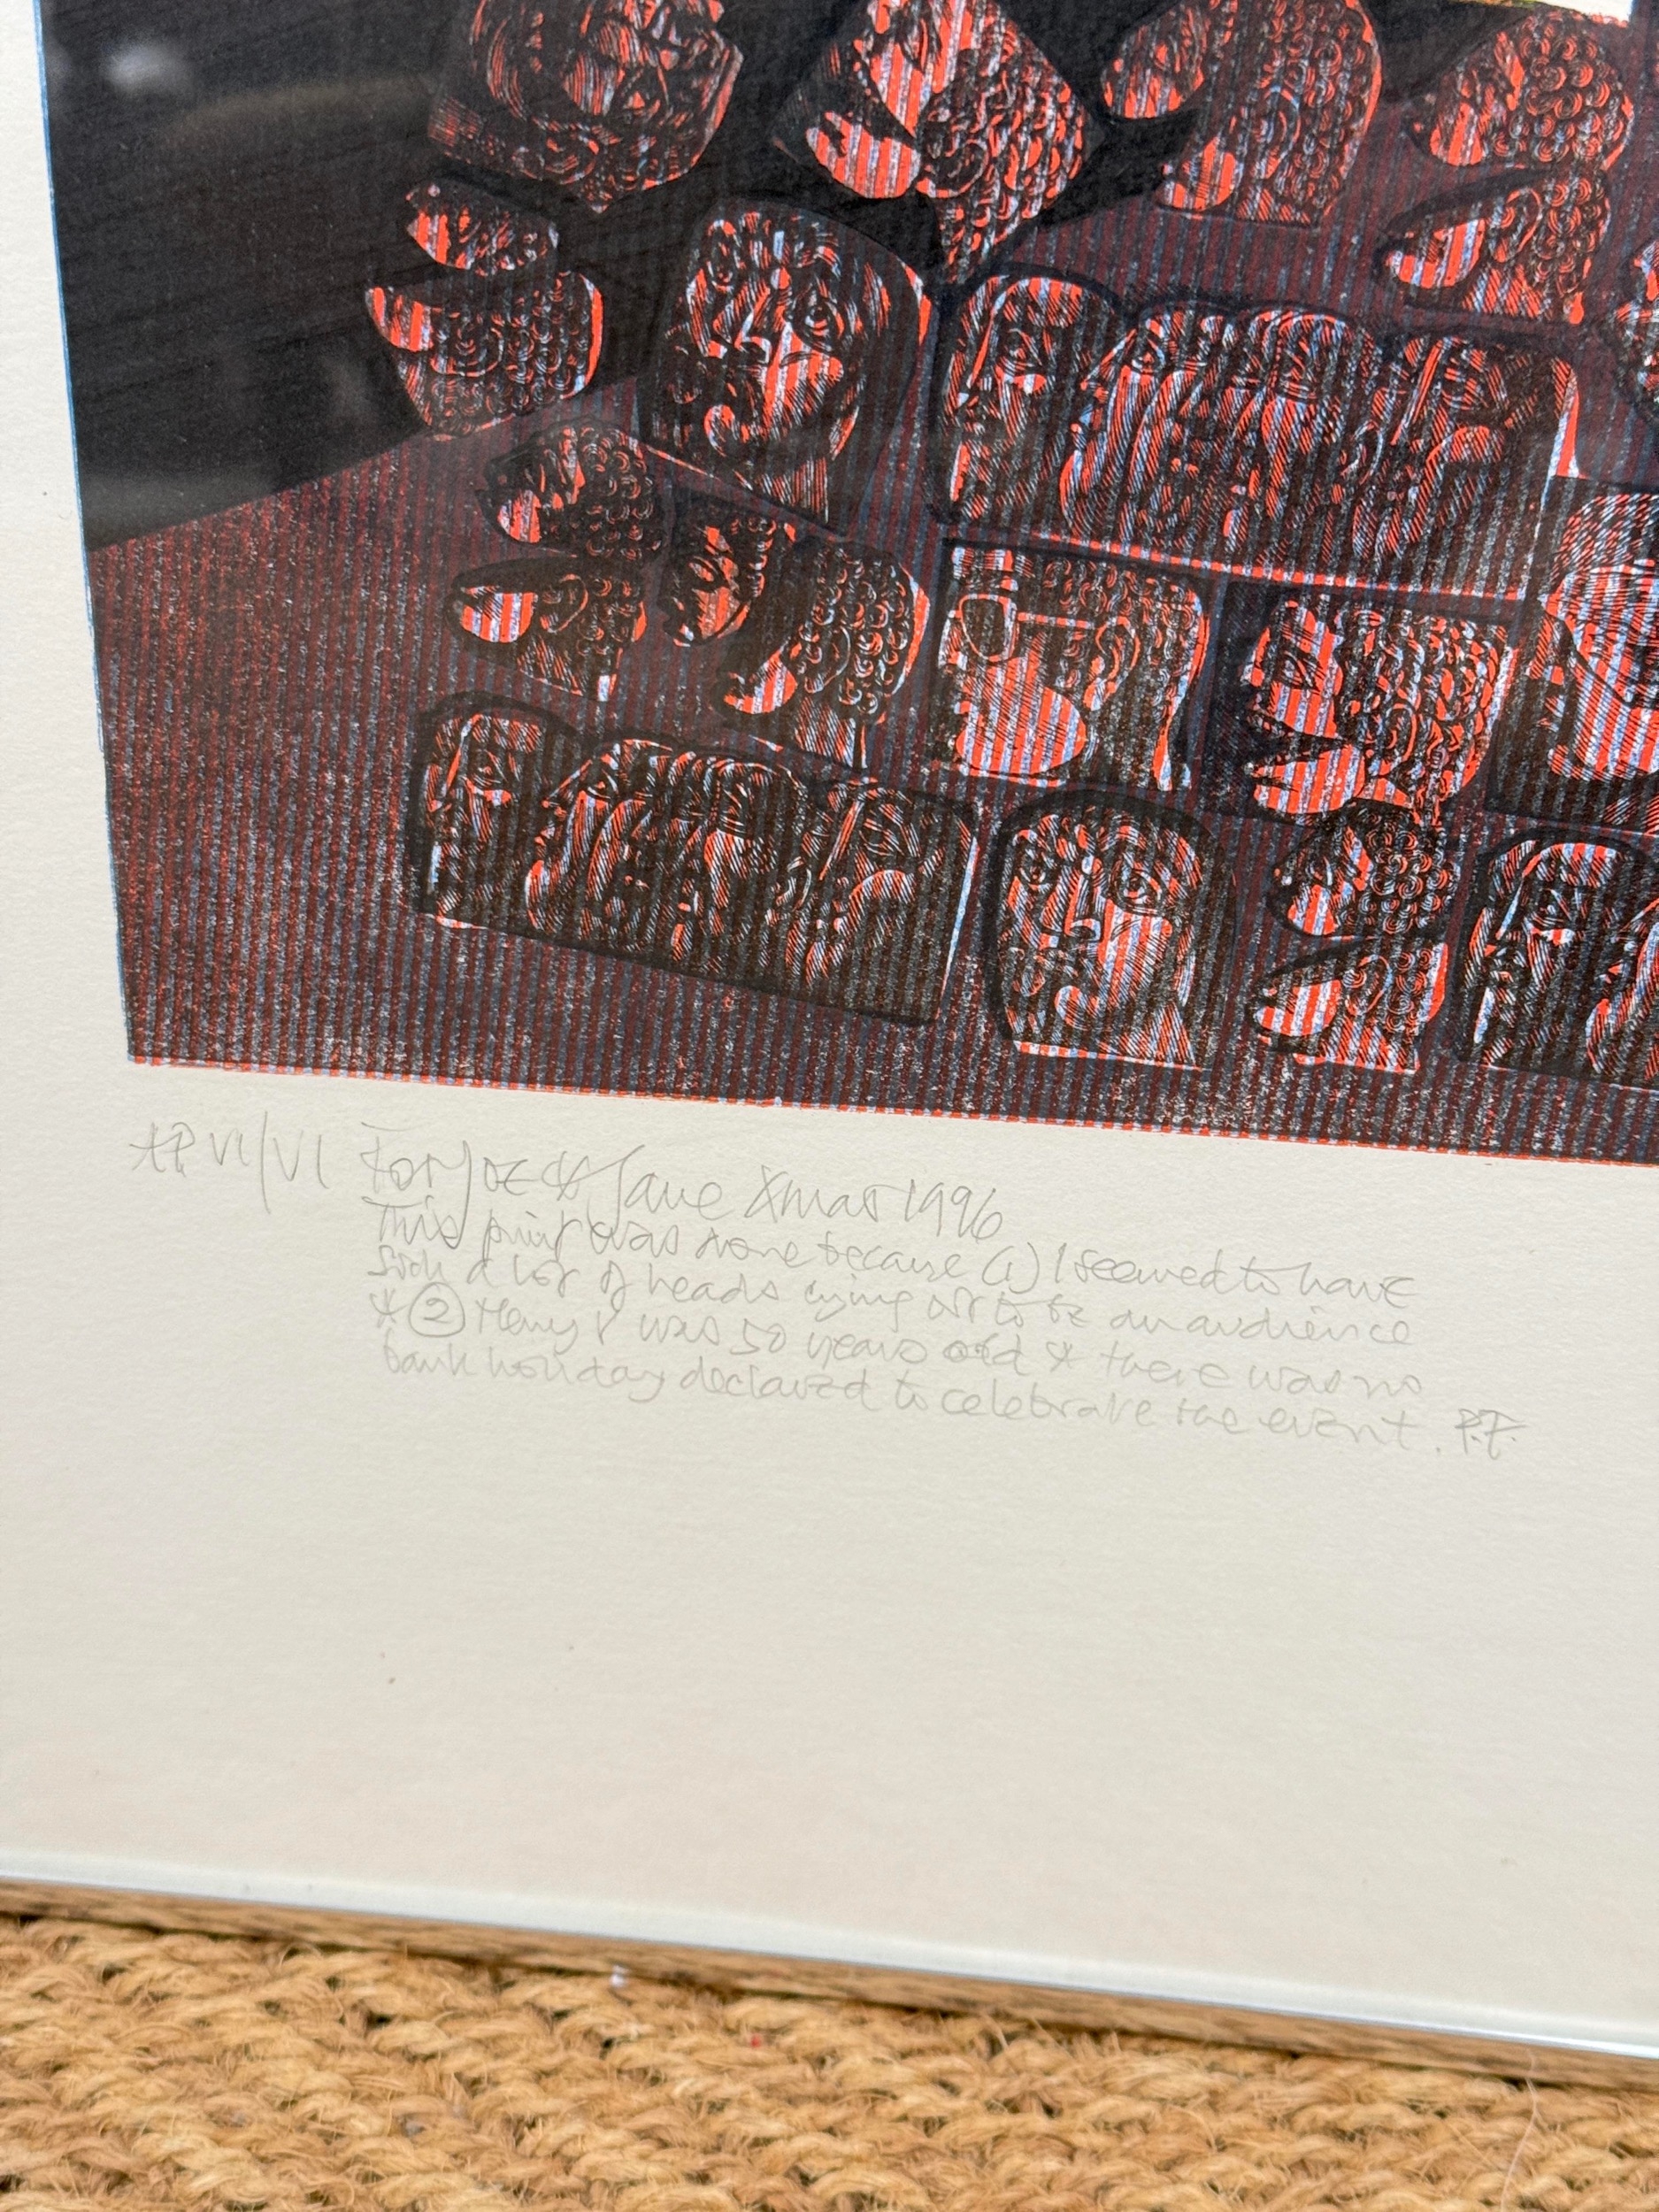 AP VI/VI For Joe & Jane Xmas 1996
This print was done because (1) I seemed to have
such a lot of heads crying out to be an audience
& (2) Henry V was 50 years old & there was no
bank holiday declared to celebrate the event. P.F.